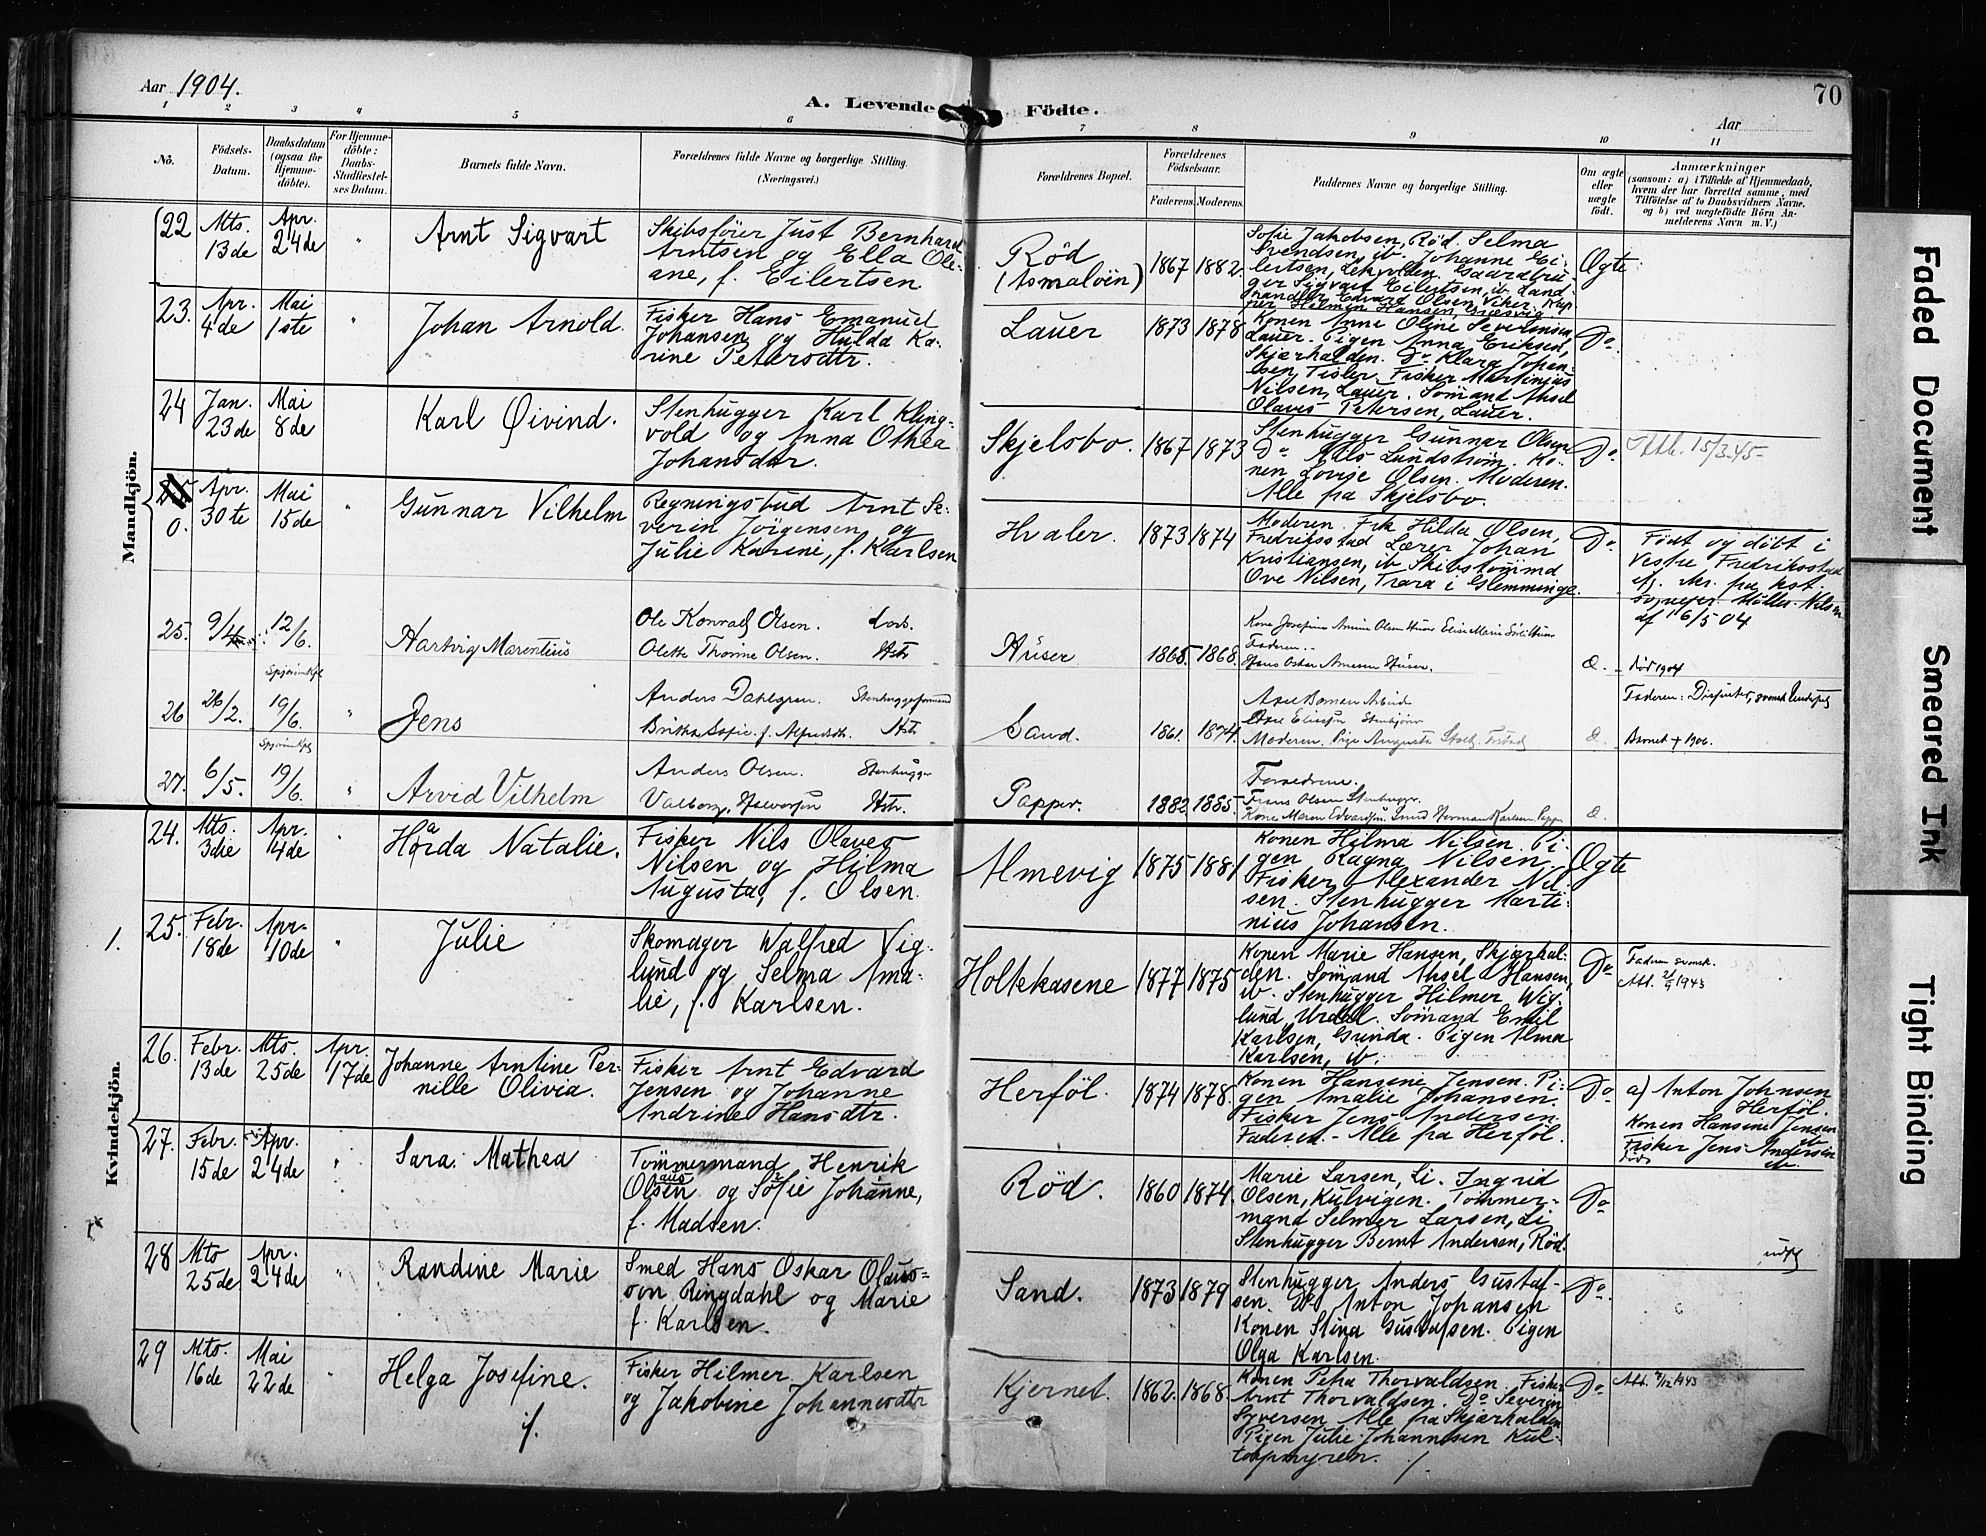 Aar 1904.
A. Levende Födte.
70
Aar
1 2 3 4 5 6 7 8 9 10 11
No.
Födsels-
Datum.
Daabsdatum
(ogsaa for
Hjemme-
döbte).
For Hjemme-
döbte:
Daabs-
Stadfæstel-
ses Datum.
Barnets fulde Navn.
Forældrenes fulde Navne og borgerlige Stilling.
(Næringsvei.)
Forældrenes Bopæl.
Forældrenes
Födselsaar.
Faderens. Moderens.
Faddernes Navne og borgerlige Stilling.
Om ægte
eller
uægte
födt.
Anmærkninger
(saasom: a) i Tilfælde af Hjemmedaab,
hvem der har forrettet samme, med
Tilföielse af to Daabsvidners Navne.
og b) ved uægtefödte Börn An-
melderens Navn m. V.)
Mandkjön.
22 Mts. 13de Apr. 24de " Arnt Sigvart
Skibsförer Just Bernhard
Arntsen og Ella Ole-
ane, f. Eilertsen
Röd
(Asmalöen)
1867 1882.
Sofie Jakobsen, Röd. Selma
Svendsen, ib. Johanne Ei-
lertsen, Gaardbru-
ger Sigvart Eilertsen, ib. Land-
handler Edvard Olsen, Viker.
Hilmen Hansen,
Ægte
23. Apr. 4de Mai 1ste " Johan Arnold.
Fisker Hans Emanuel
Johansen og Hulda Ka-
rine Petersdtr.
Lauer
1873 1878
Konen Anne Oline Severinsen,
Lauer. Pigen Anna Eriksen,
Skjærhalden. Do Klara Johan-
sen, Tisler. Fisker Martinius
Nilsen, Lauer. Sömand Aksel
Olaves Petersen, Lauer.
Do
24 Jan. 23de Mai 8de " Karl Øivind.
Stenhugger Karl Kling-
vold og Anna Othea
Johansdtr.
Skjelsbo.
1867 1873
Stenhugger Gunnar Olsen
Do Nils Lundström. Ko-
nen Lovise Olsen. Moderen.
Alle fra Skjelsbo.
Do
Att. 15/3 45-
0. Apr. 30te Mai 15de " Gunnar Vilhelm
Regningsbud Arnt Se-
verin Jörgensen og
Julie Karine, f. Karlsen
Hvaler.
1873 1874
Moderen. Frk Hilda Olsen,
Fredriksstad Lærer Johan
Kristiansen, ib Skibstömmd
Ove Nilsen, Trara i Glemminge.
Do
Födt og döbt i
Vestre Fredriksstad
Møller Nilsen
af 16/5 04
25. 9/4 12/6. Hartvig Marentius
Ole Konrad Olsen.
Olette Thorine Olsen. Hstr
Huser
1865. 1868.
Faderen.
Hans Oskar Arnesen Huser.
Æ.
Död 1904
26 26/2. Spjærøinkpl 19/6. " Jens
Anders Dahlgren. Stenhuggerformand
Britha Sofie f. Alfredsdtr. Hstr
Sand.
1861. 1874.
Axel Boman Arbeid
Moderen. Pige Augusta
Æ.
Faderen: Dissenter, svensk Undersaat
Barnet + 1906.
27. 6/5. Spjærøinkpl 19/6. " Arvid Vilhelm
Anders Olsen. Stenhugger
Valborg, Halvorsen Hstr.
Papper.
1882 1885.
Forældrene.
Frans Olsen Stenhugger.
Kone Maren Edvardsen Sand Herman Karlsen Papper
Æ.
Kvindekjön.
24. Mts. 3die Apr. 4de " Hårda Natalie.
Fisker Nils Olaves
Nilsen og Hilma
Augusta, f. Olsen.
Almevig
1875 1881
Konen Hilma Nilsen. Pi-
gen Ragna Nilsen.
Fisker Alexander Nil-
sen. Stenhugger Marti-
nius Johansen.
Ægte
1. 25. Febr. 18de Apr. 10de " Julie
Skomager Walfred Vig-
lund og Selma Ama-
lie, f. Karlsen.
Holtekasene
1877 1875
Konen Marie Hansen, Skjærhal-
den. Sömand Aksel Hansen,
ib. Stenhugger Hilmer Wig-
lund, Urdal. Sömand Emil
Karlsen, Grinda. Pigen Alma
Karlsen, ib.
Do
Faderen svensk.
Att. 21/9 1943
26. Febr. 13de Mts. 25de Apr. 17de
Johanne Arntine Per-
nille Olivia.
Fisker Arnt Edvard
Jensen og Johanne
Andrine Hansdtr.
Herföl.
1874 1878.
Konen Hansine Jensen. Pi-
gen Amalie Johansen.
Fisker Jens Andersen.
Faderen. - Alle fra Herföl.
Do
a) Anton Johnsen
Herföl.
Konen Hansine Jensen
ib
Fisker Jens Andersen
ib.
27. Febr. 15de Apr. 24de " Sara Mathea
Tömmermand Henrik
Olsen og Sofie Johanne,
f. Madsen.
Röd.
1860 1874.
Marie Larsen, Li. Ingrid
Olsen, Kulvigen. Tömmer-
mand Selmer Larsen, Li
Stenhugger Bernt Andersen, Röd.
Do
28 Mts 25de Apr. 24de " Randine Marie
Smed Hans Oskar Olaus-
son Ringdahl og Marie
f. Karlsen.
Sand.
1873 1879
Stenhugger Anders Gustaf-
sen. Do Anton Johansen
Konen Stina Gustafsen. Pigen
Olga Karlsen.
Do
29 Mts. 16de Mai 22de " Helga Josefine.
Fisker Hilmer Karlsen
og Jakobine Johannesdtr
Kjernet.
1862. 1868.
Konen Petra Thorvaldsen. Fisker
Arnt Thorvaldsen. Do Severin
Syversen Alle fra Skjærhalden
Pigen Julie Johannesen Kul-
torpmyren.
Do
Faded Document
Smeared Ink
Tight Binding